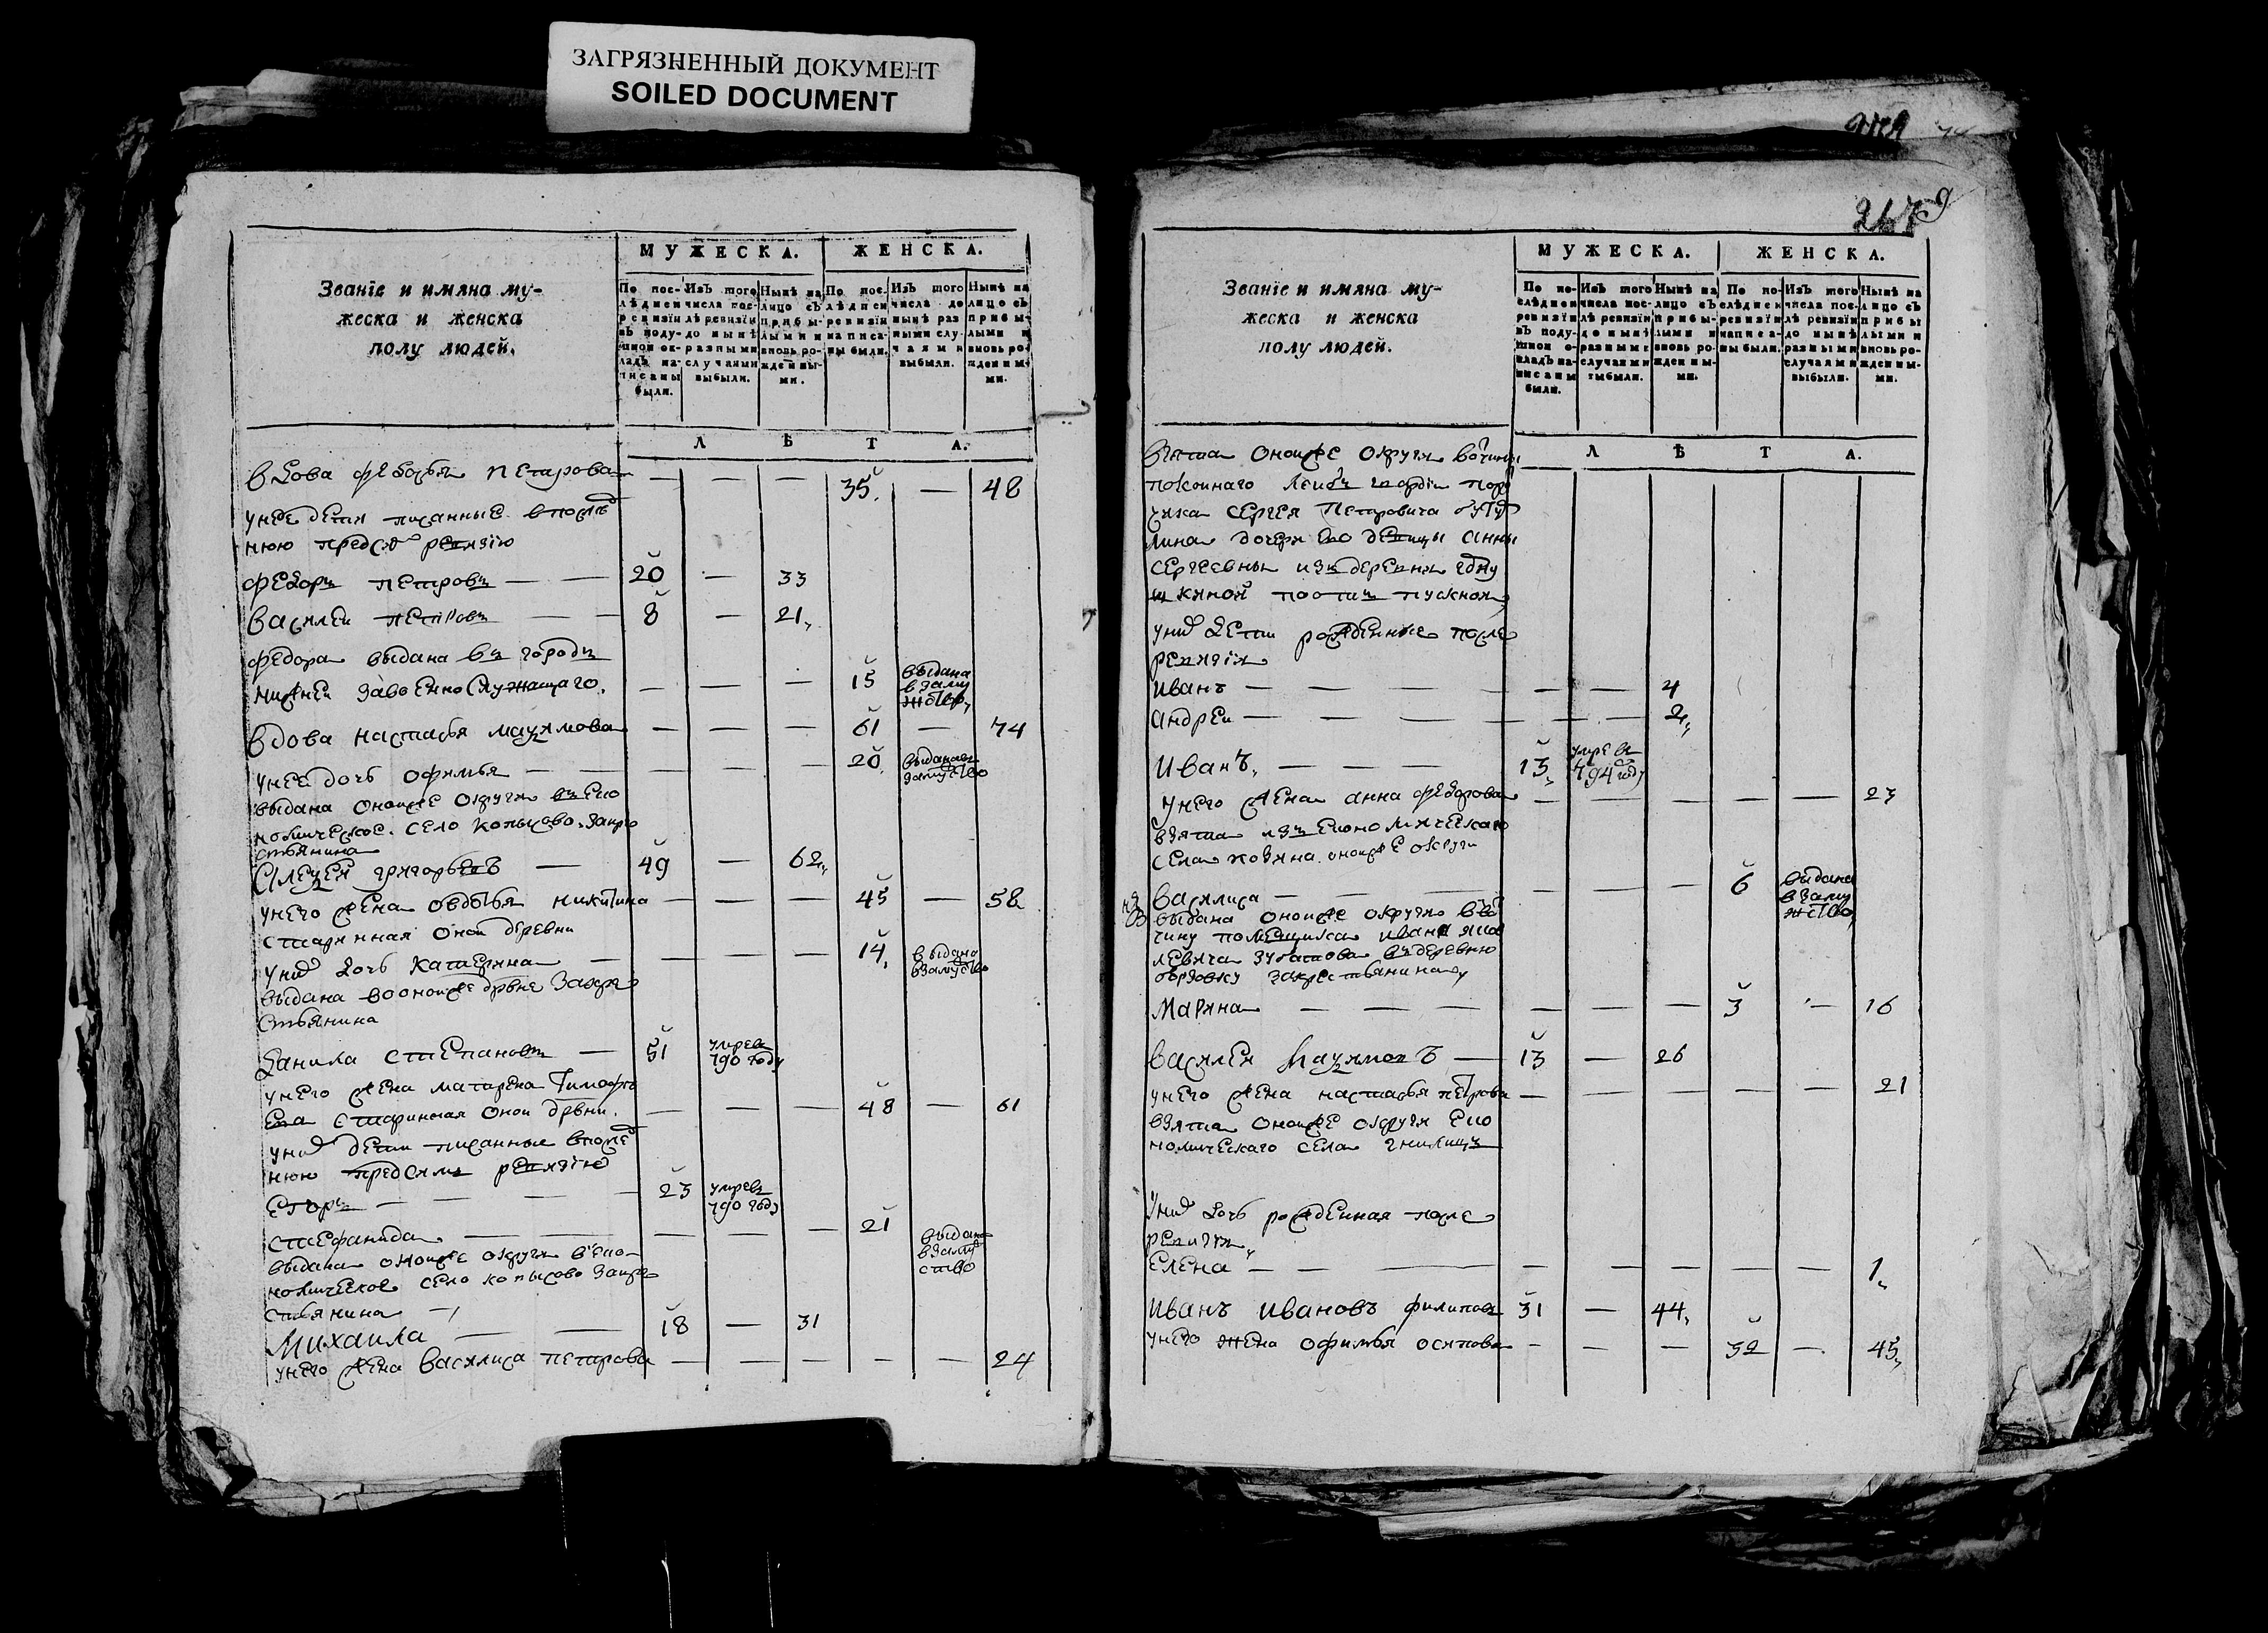 ЗАГРЯЗНЕННЫЙ ДОКУМЕНТ
SOILED DOCUMENT
Званїе и имяна му-
жеска и женска
полу людей.
МУЖЕСКА.
ЖЕНСКА.
По пос-
лѣдней
ревизїи
въ поду-
шной ок-
ладъ на-
писаны
были.
Изъ того
числа пос-
лѣ ревизїи
до нынѣ
разными
случаями
выбыли.
Нынѣ на
лицо съ
прибы-
лыми и
вновь ро-
жденны-
ми.
По пос-
лѣдней
ревизїи
написа-
ны были.
Изъ того
числа до
нынѣ раз
ными слу-
чаями
выбыли.
Нынѣ на
лицо съ
прибы-
лыми и
вновь ро-
жденны-
ми.
ЛѢТА.
вдова федосья петрова — — — 35 — 48
унее дети писанные впослед
нюю пред сим ревизию
федоръ петровъ — — 20 — 33
василеи петровъ — — 8 — 21
федора выдана въ городъ
завоенно служащаго. — — — 15 выдана
взаму
жство
вдова настасья мазимова — — — 61 — 74
унее дочь офимья — — — — 20 выдана
замуство
выдана оноиже округи въ еко
номическое село копысово закре
стьянина
Алексеи григорьевъ — 49 — 62
унего жена овдотья никитина — — — 45 — 58
старинная онои деревни
уних дочь катерина — — — — 14 выдана
взамуство
выдана вооноиже дрвне закре
стьянина
данила степановъ — 51 умре въ
790 году
унего жена матрена тимофе
ева старинная онои дрвни. — — — 48 — 61
уних дети писанные впослед
нюю предсимъ ревизию
Егоръ — — — — 23 умре въ
790 году
стефанида — — — — — 21 выдана
взаму
ство
выдана оноиже округи векo
номическое село копысово закре
стьянина —
Михаила — — 18 — 31
унего жена василиса петрова — — — — — 24
2479
Званїе и имяна му-
жеска и женска
полу людей.
МУЖЕСКА.
ЖЕНСКА.
По по-
слѣдней
ревизїи
въ поду-
шной о-
кладъ на-
писаны
были.
Изъ того
числа пос-
лѣ ревизїи
до нынѣ
разными
случаями
выбыли.
Нынѣ на
лицо съ
прибы-
лыми и
вновь ро-
жденны-
ми.
По по-
слѣдней
ревизїи
написа-
ны были.
Изъ того
числа пос-
лѣ ревизїи
до нынѣ
разными
случаями
выбыли.
Нынѣ на
лицо съ
прибы
лыми и
вновь ро-
жденны-
ми.
ЛѢТА.
взята оноиже округи вотчины
покоинаго леибъ гвардии пору
чика сергея Петровича
дочери ево девицы анны
сергеевны изъ деревни
по отпускнои
уних дети рожденные после
ревизии
иванъ — — — — — — 4
андреи — — — — — — 2
Иванъ — — — 13 умре въ
794 году
унего жена анна федорова — — — — — 23
взята изъ економическаго
села козина оноиже округи
василиса — — — — — — 6 выдана
взаму
жство
выдана оноиже округи ввот
чину помещика ивана яков
левича зубатова въ деревню
закрестьянина
Марина — — — — — — 3 — 16
василеи Мазимовъ — 13 — 26
унего жена настасья петрова — — — — — 21
взята оноиже округи еко
номическаго села гнилицъ
уних дочь рожденная после
ревизии
Елена — — — — — — — — 1
иванъ ивановъ филипов 31 — 44
унего жена офимья осипова — — — 32 — 45